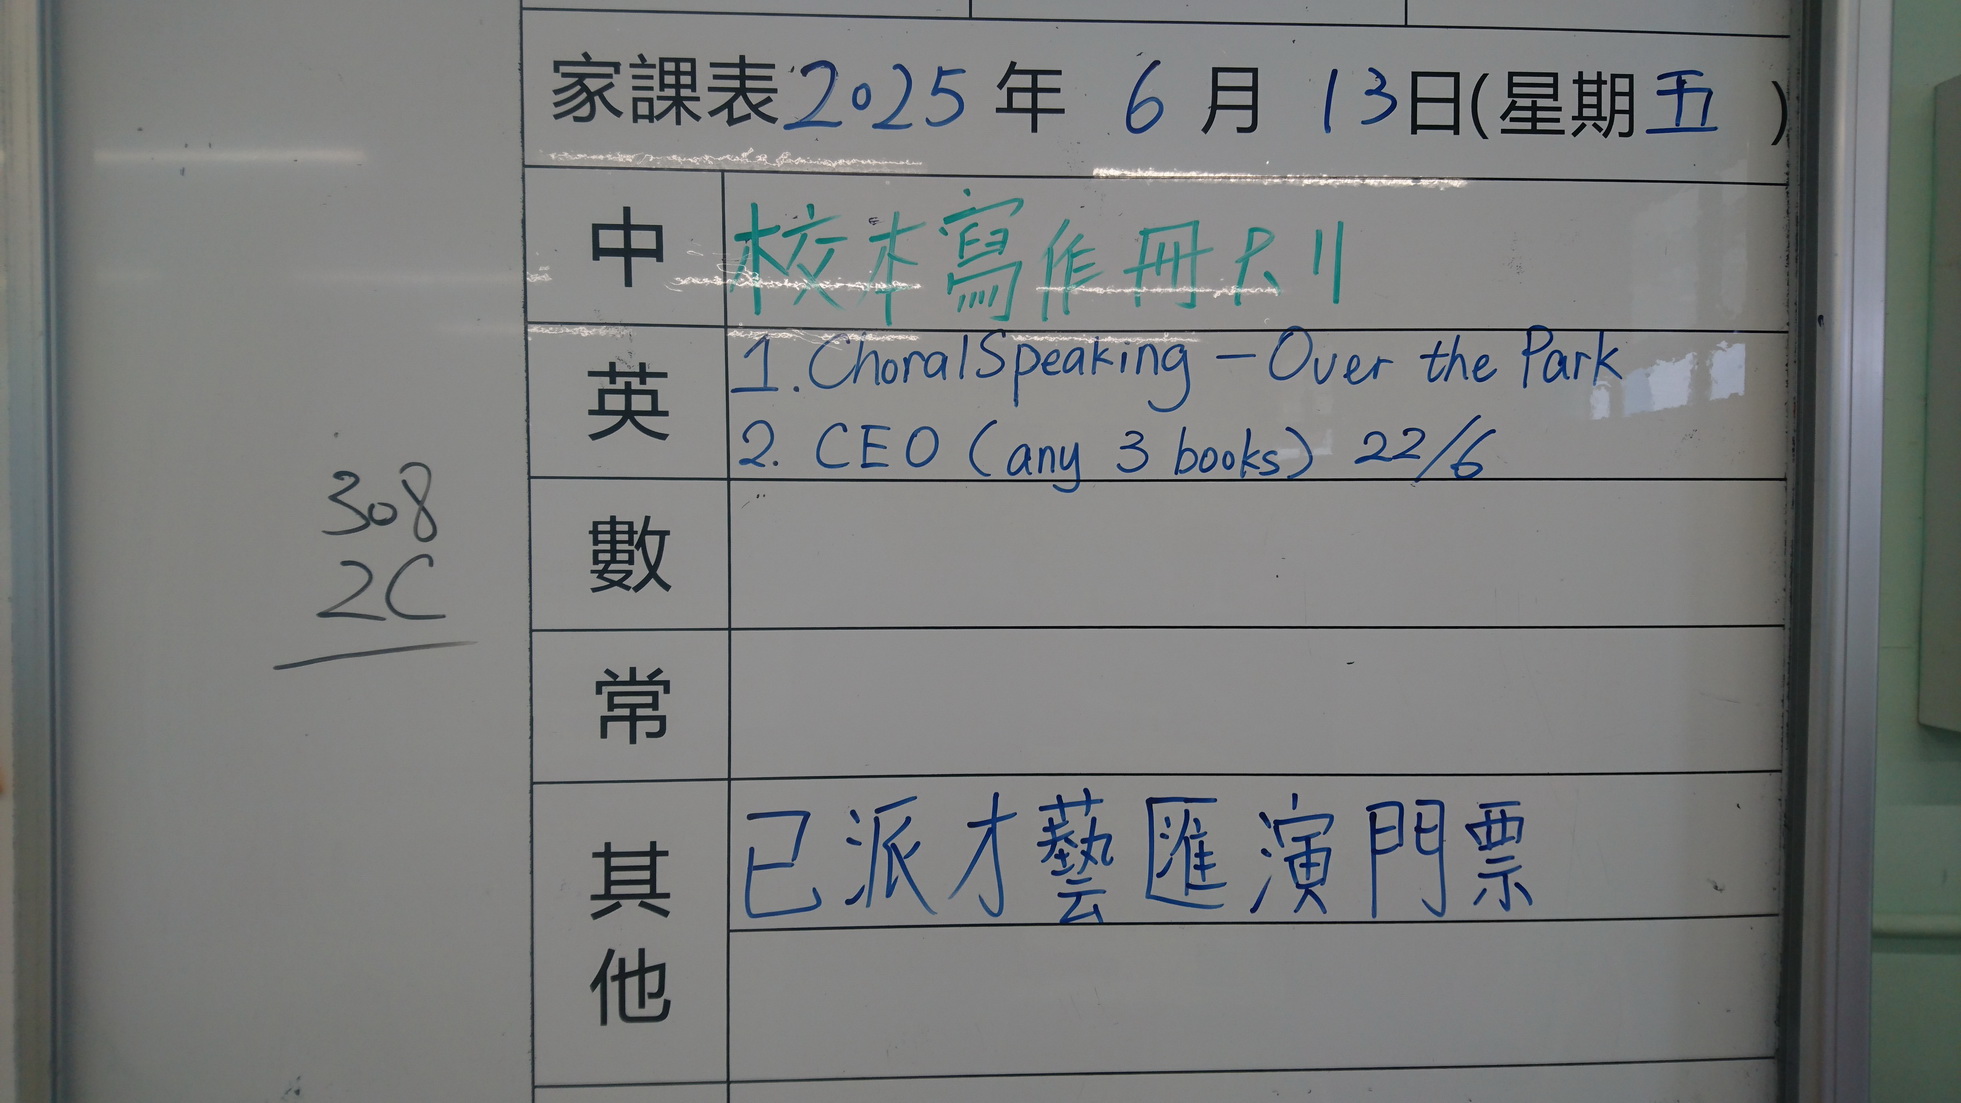 家課表 2025 年 6 月 13 日(星期五)
中 校本寫作冊 P.11
英 1. Choral Speaking — Over the Park
2. CEO (any 3 books) 22/6
數
常
其他 已派才藝匯演門票
308
2C